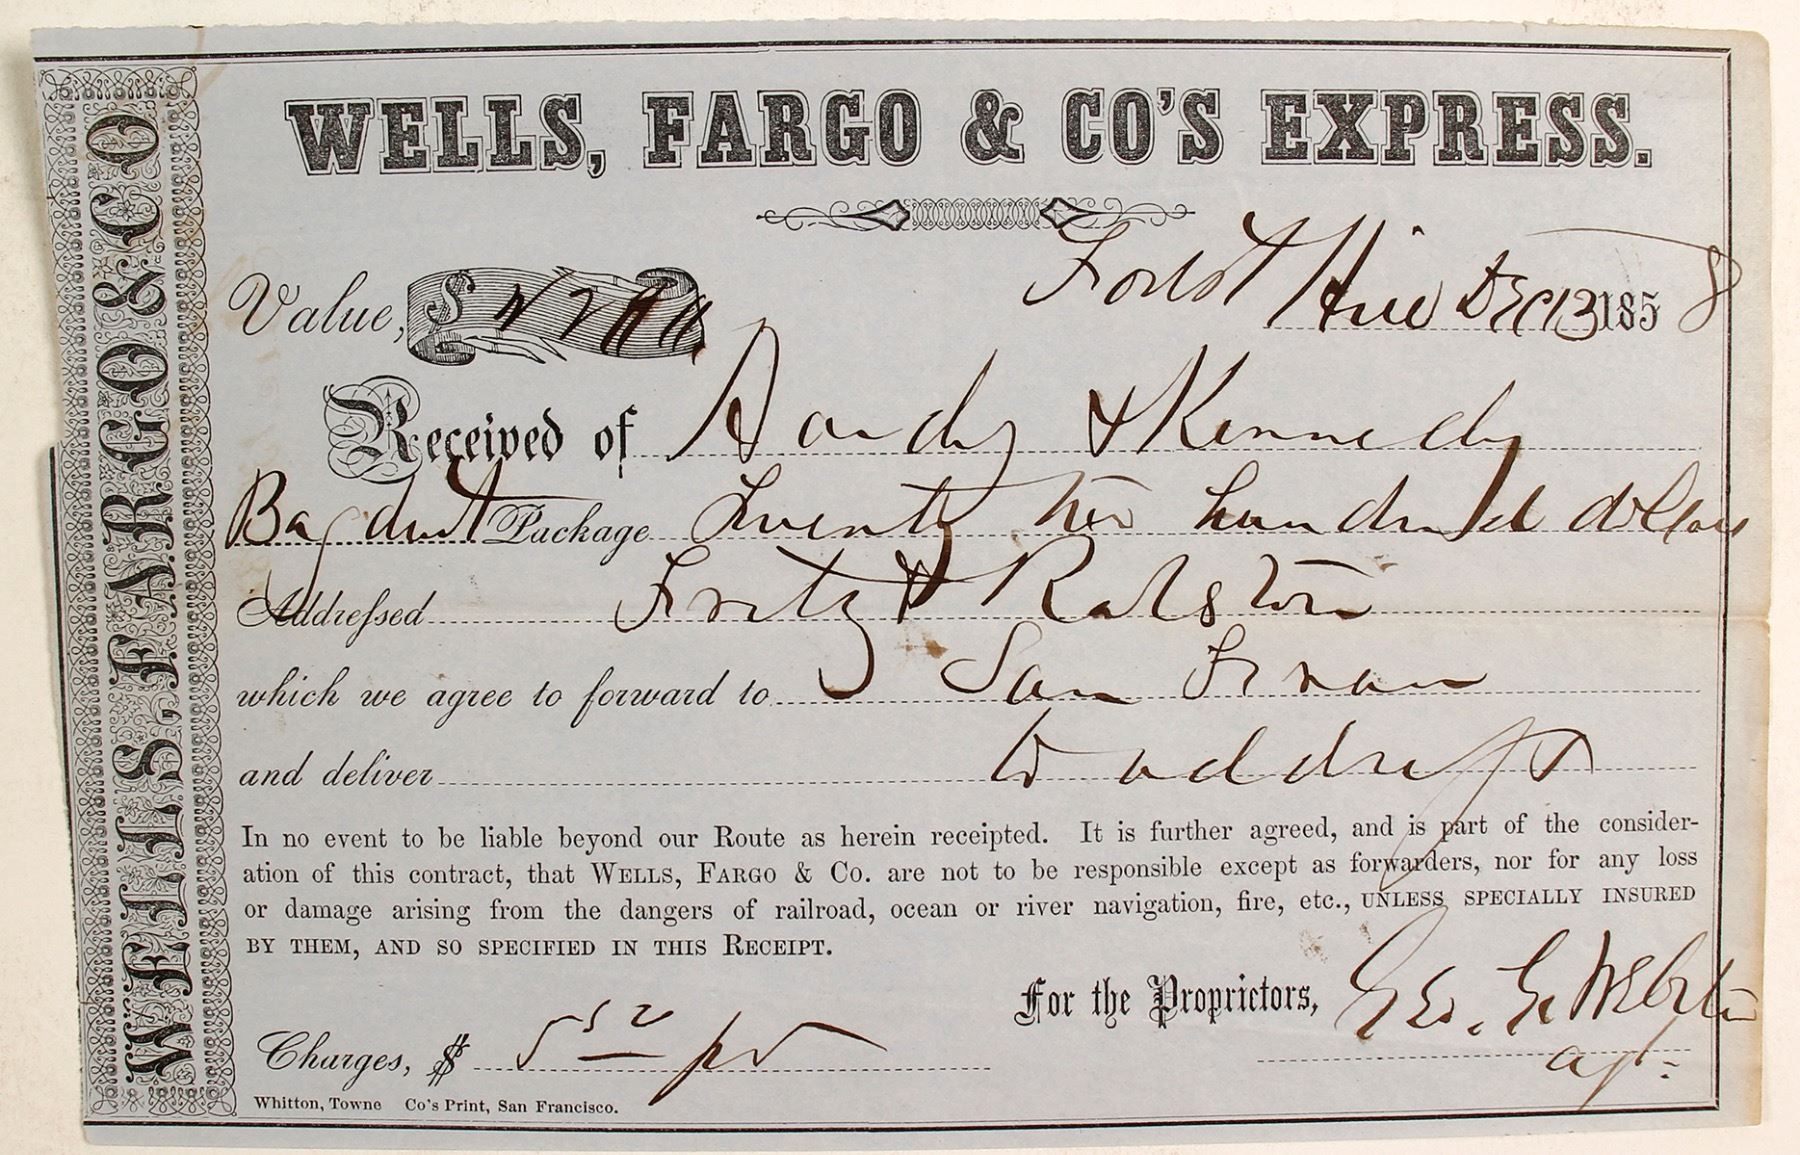 WELLS, FARGO & CO
WELLS, FARGO & CO'S EXPRESS.
Forest Hill Dec 13 1858
Value, $ 2200
Received of Hardy & Kennedy
Bag dust Package Twenty two hundred dollars
Addressed Fretz & Ralston
which we agree to forward to San Fran
and deliver
In no event to be liable beyond our Route as herein receipted. It is further agreed, and is part of the consider-
ation of this contract, that WELLS, FARGO & CO. are not to be responsible except as forwarders, nor for any loss
or damage arising from the dangers of railroad, ocean or river navigation, fire, etc., UNLESS SPECIALLY INSURED
BY THEM, AND SO SPECIFIED IN THIS RECEIPT.
For the Proprietors, Geo. G. Webster
agt.
Charges, $ 5 50 pd
Whitton, Towne Co's Print, San Francisco.